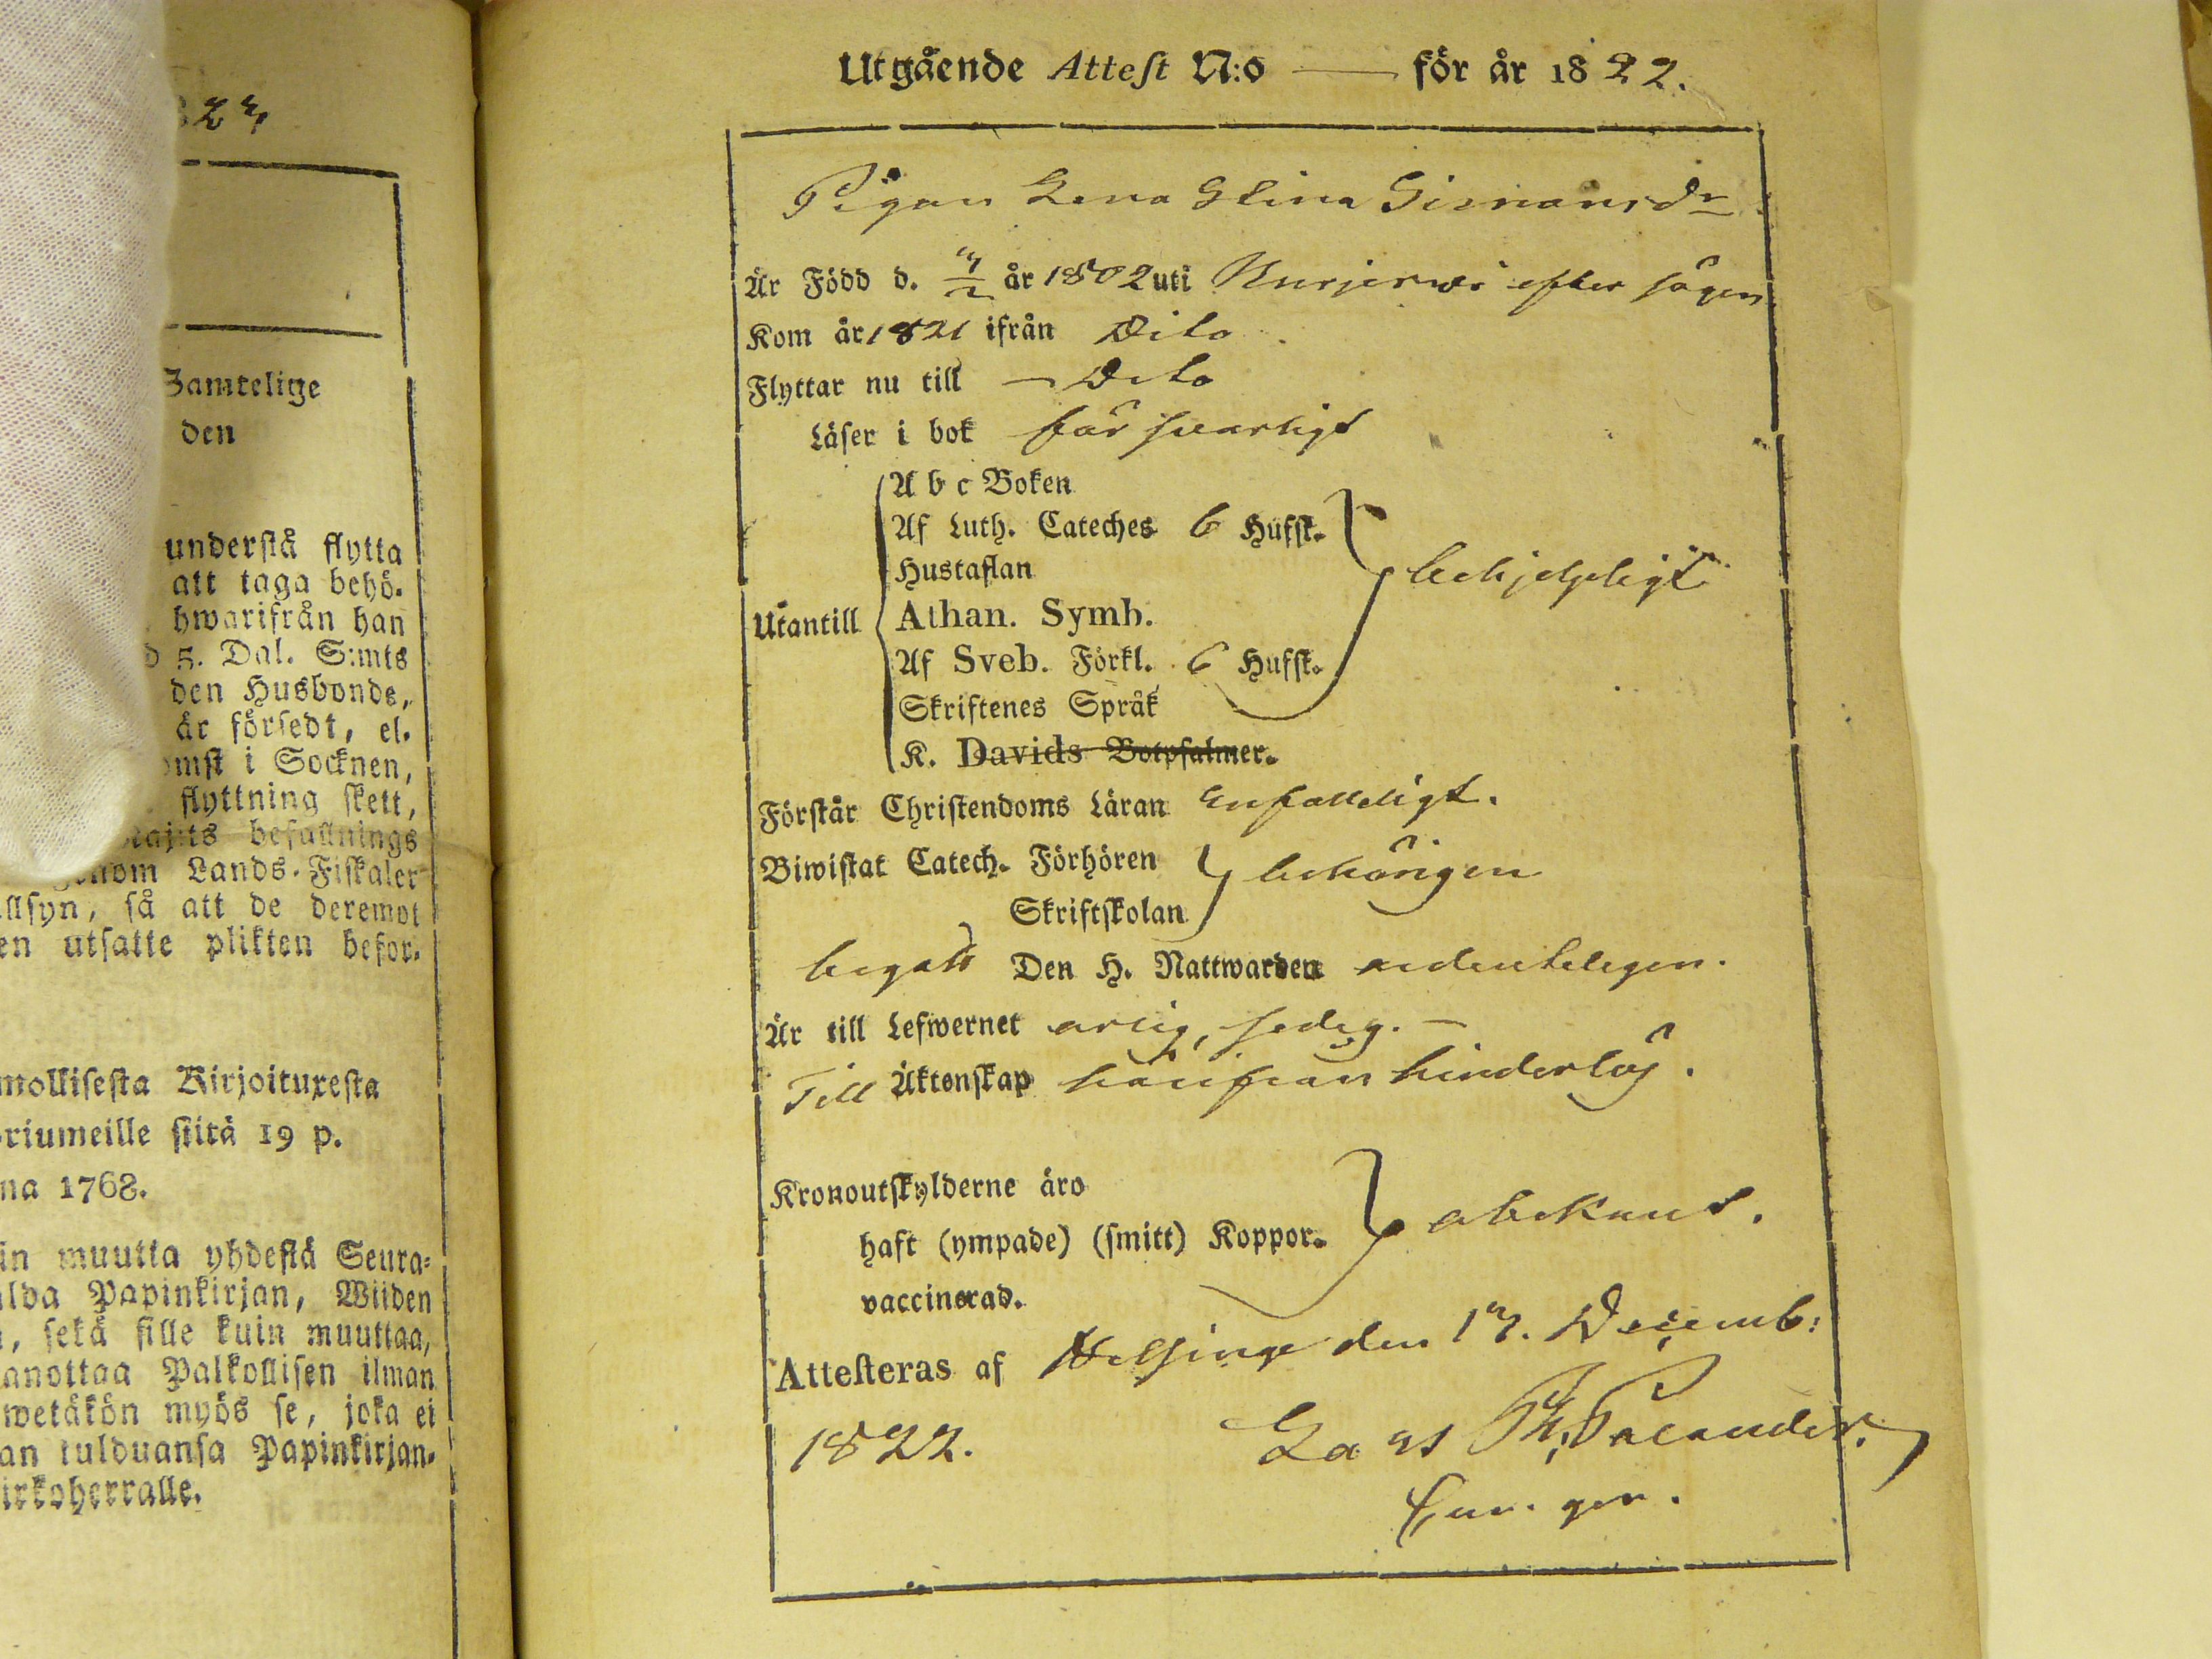 824
Samtelige
den
understå flytta
att taga behö-
hwarifrån han
d 5. Dal. S:mts
den Husbonde,
är försedt, el-
omst i Socknen,
flyttning skett,
Maj:ts befallnings
genom Lands-Fiskaler
llsyn, så att de deremot
en utsatte plikten befor-
mollisesta Kirjoituxesta
riumeille siitä 19 p.
na 1768.
in muutta yhdestä Seura-
lda Papinkirjan, Wiiden
, sekä sille kuin muuttaa,
anottaa Palkollisen ilman
wetäkön myös se, joka ei
an tulduansa Papinkirjan-
irkoherralle.
Utgående Attest N:o — för år 1822.
Pigan Lena Stina Simonsdr
Är Född d. år 1802 uti Kurjerwi efter sägen
Kom år 1821 ifrån Dito
Flyttar nu till — Dito
Läser i bok försvarligt
A b c Boken
Af Luth. Cateches 6 Hufst.
Hustaflan
Utantill Athan. Symb. behjelpligt
Af Sveb. Förkl. 6 Hufst.
Skriftenes Språk
K. Davids Botpsalmer.
Förstår Christendoms Läran enfalleligt.
Biwistat Catech. Förhören behörigen
Skriftskolan
begått Den H. Nattwarden ordenteligen.
Är till Lefwernet ärlig, sedig. —
Till Äktenskap härifrån hinderlös.
Kronoutskylderne äro
haft (ympade) (smitt) Koppor. obekant.
vaccinerad.
Attesteras af Helsinge den 17. Decemb:
1822. Lars Palander.